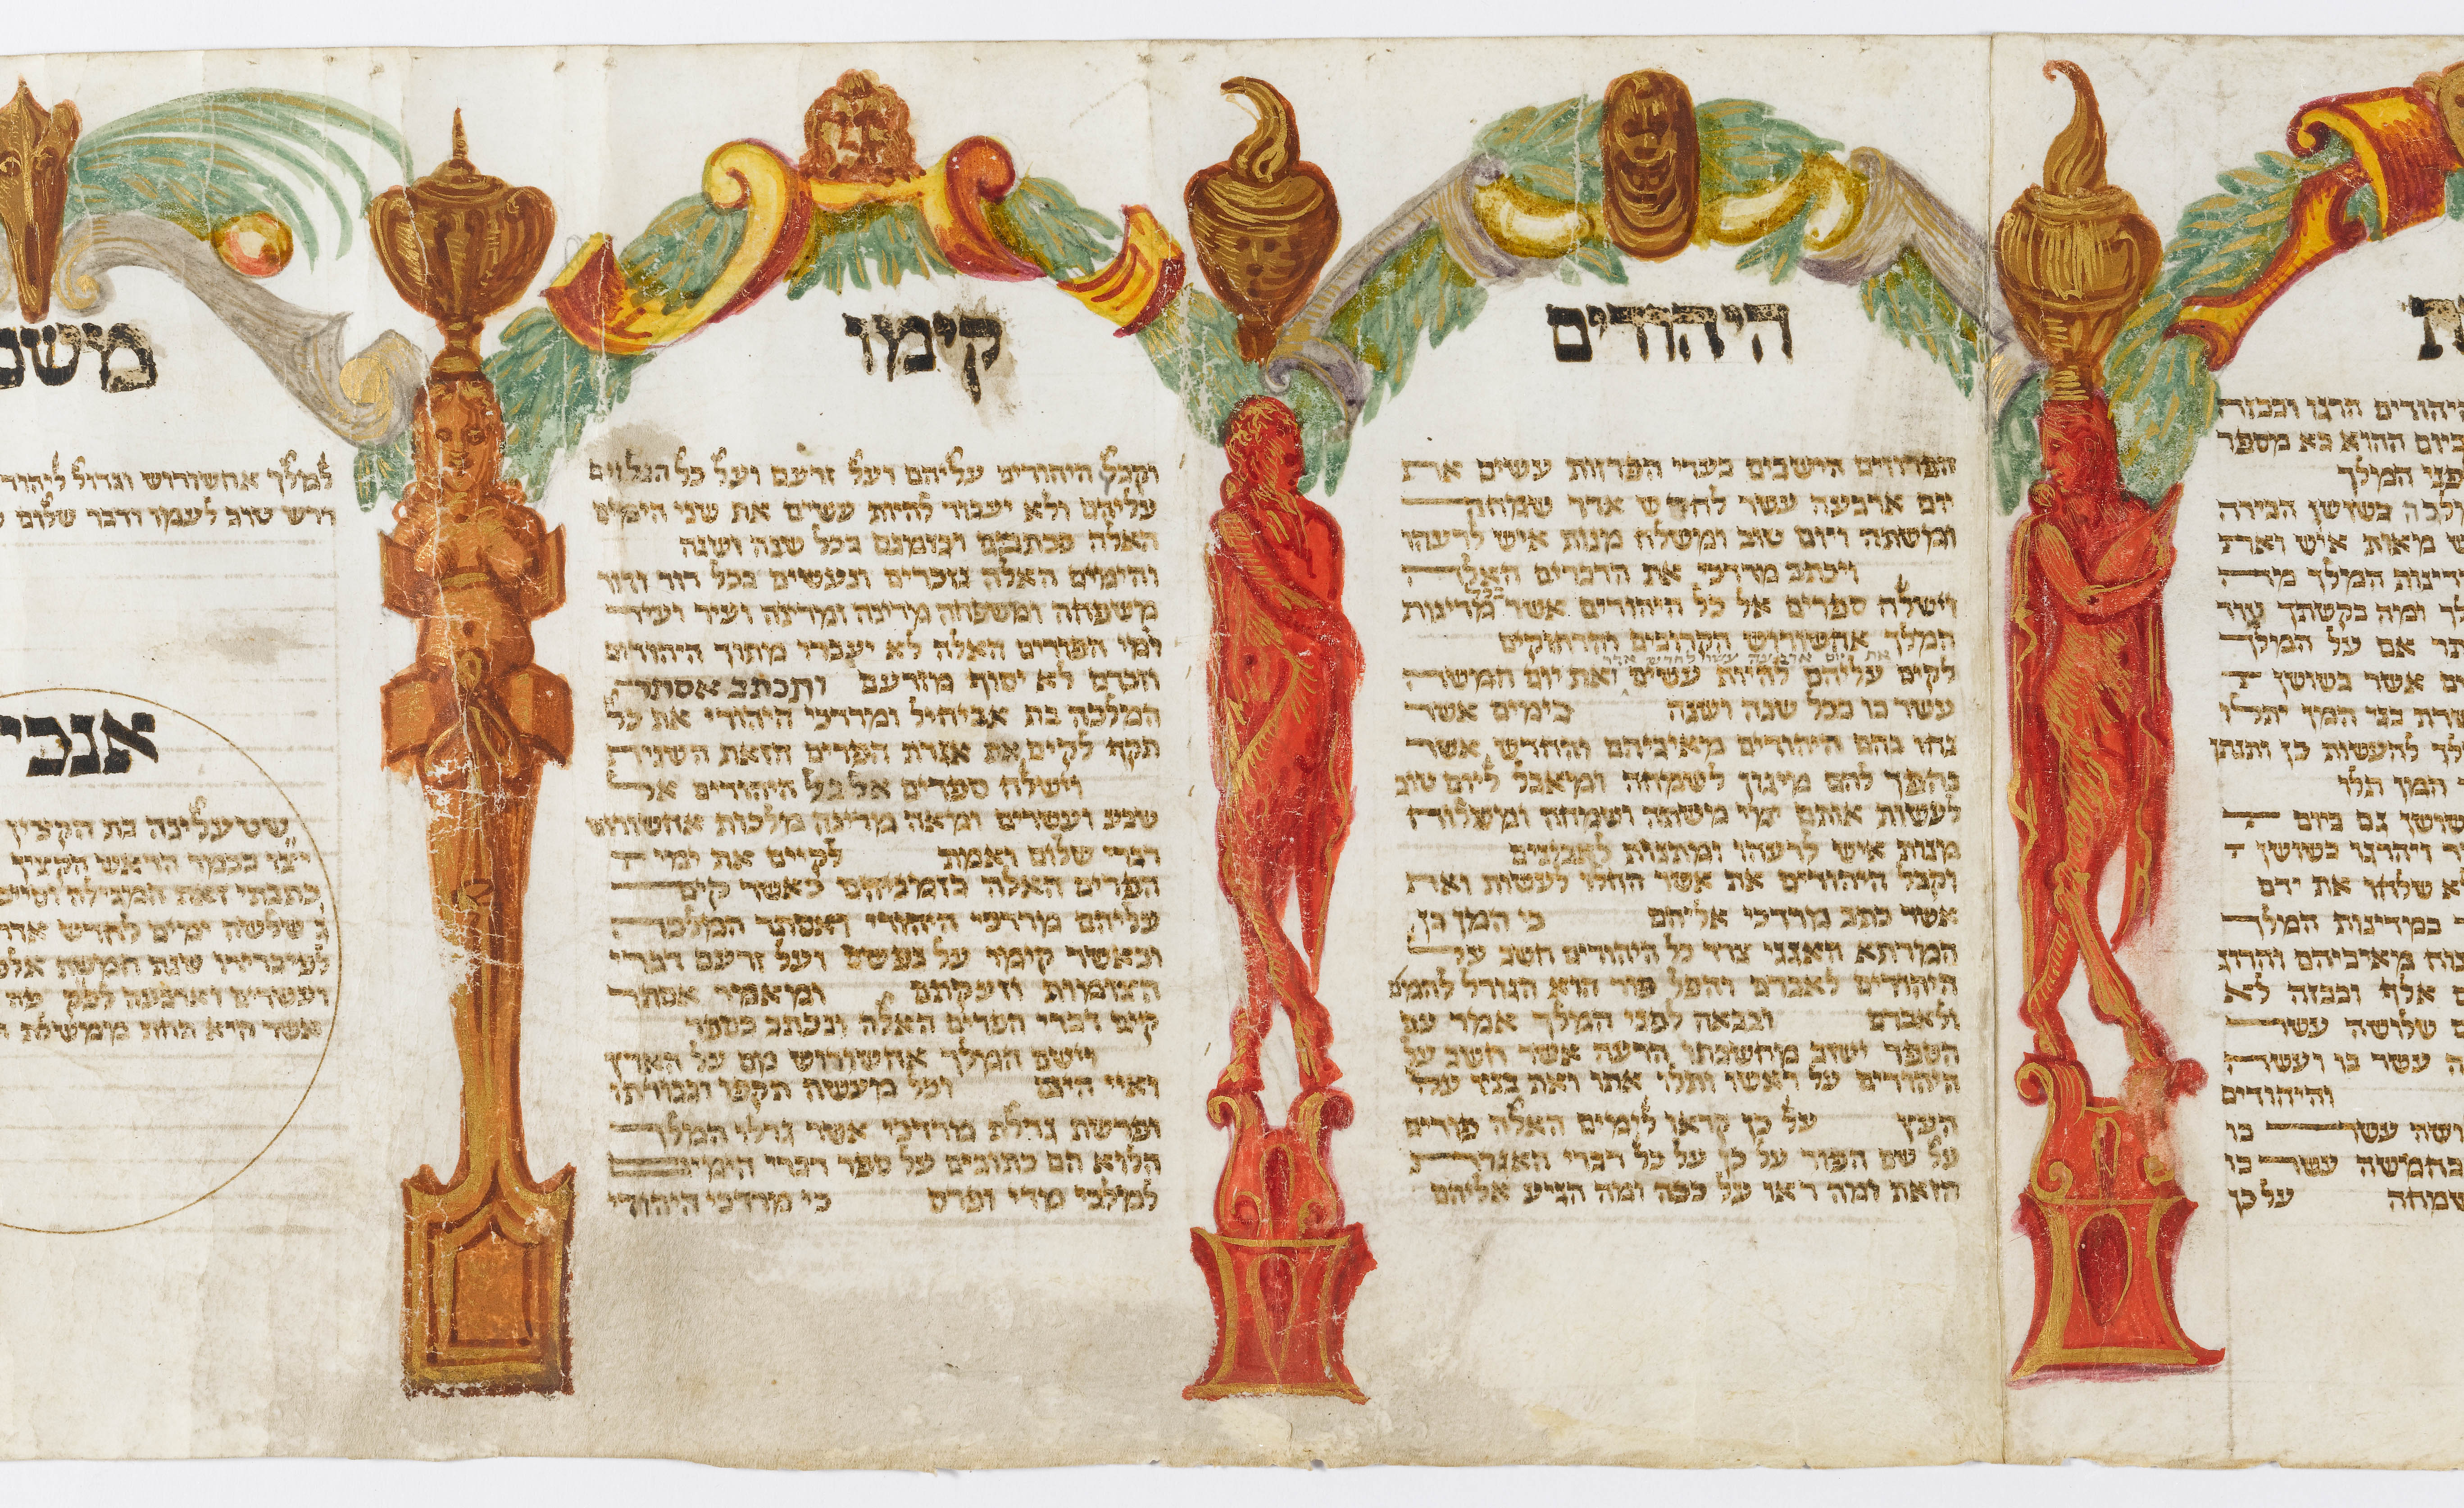 ת
היהודים הרגו ובבזה
ביום ההוא בא מספר
לפני המלך
בשושן הבירה
מאות איש ואת
מדינות המלך מה
ומה בקשתך עוד
אם על המלך
אשר בשושן
עשרת בני המן יתלו
להעשות כן ותנתן
המן תלו
בשושן גם ביום
ויהרגו בשושן
לא שלחו את ידם
במדינות המלך
מאיביהם והרוג
אלף ובבזה לא
שלושה עשר
עשר בו ועשה
והיהודים
עשר בו
בחמישה עשר בו
ושמחה על כן
היהודים
הפרוזים הישבים בערי הפרזות עשים את
יום ארבעה עשר לחדש אדר שמחה
ומשתה ויום טוב ומשלח מנות איש לרעהו
ויכתב מרדכי את הדברים האלה
וישלח ספרים אל כל היהודים אשר בכל מדינות
המלך אחשורוש הקרובים והרחוקים
את יום ארבעה עשר לחדש אדר
לקים עליהם להיות עשים ואת יום חמשה
עשר בו בכל שנה ושנה כימים אשר
נחו בהם היהודים מאיביהם והחדש אשר
נהפך להם מיגון לשמחה ומאבל ליום טוב
לעשות אותם ימי משתה ושמחה ומשלוח
מנות איש לרעהו ומתנות לאביונים
וקבל היהודים את אשר החלו לעשות ואת
אשר כתב מרדכי אליהם כי המן בן
המדתא האגגי צרר כל היהודים חשב על
היהודים לאבדם והפל פור הוא הגורל להמם
ולאבדם ובבאה לפני המלך אמר עם
הספר ישוב מחשבתו הרעה אשר חשב על
היהודים על ראשו ותלו אתו ואת בניו על
העץ על כן קראו לימים האלה פורים
על שם הפור על כן על כל דברי האגרת
הזאת ומה ראו על ככה ומה הגיע אליהם
קימו
וקבל היהודים עליהם ועל זרעם ועל כל הנלוים
עליהם ולא יעבור להיות עשים את שני הימים
האלה ככתבם וכזמנם בכל שנה ושנה
והימים האלה נזכרים ונעשים בכל דור ודור
משפחה ומשפחה מדינה ומדינה ועיר ועיר
וימי הפורים האלה לא יעברו מתוך היהודים
וזכרם לא יסוף מזרעם ותכתב אסתר
המלכה בת אביחיל ומרדכי היהודי את כל
תקף לקים את אגרת הפרים הזאת השנית
וישלח ספרים אל כל היהודים אל
שבע ועשרים ומאה מדינה מלכות אחשורוש
דברי שלום ואמת לקיים את ימי
הפרים האלה בזמניהם כאשר קים
עליהם מרדכי היהודי ואסתר המלכה
וכאשר קימו על נפשם ועל זרעם דברי
הצומות וזעקתם ומאמר אסתר
קים דברי הפרים האלה ונכתב בספר
וישם המלך אחשורוש מס על הארץ
ואיי הים וכל מעשה תקפו וגבורתו
ופרשת גדלת מרדכי אשר גדלו המלך
הלוא הם כתובים על ספר דברי הימים
למלכי מדי ופרס כי מרדכי היהודי
משנ
למלך אחשורוש וגדול ליהוד
דרש טוב לעמו ודבר שלום
אנכי
סטעלינה בת הקצין
כבמר הראש הקצין
כתבתי זאת המגילה
שלשה ימים לחדש אדר
שנת חמשת אלפ
ועשרים וארבעה לפק
אשר היא תחת ממשלת